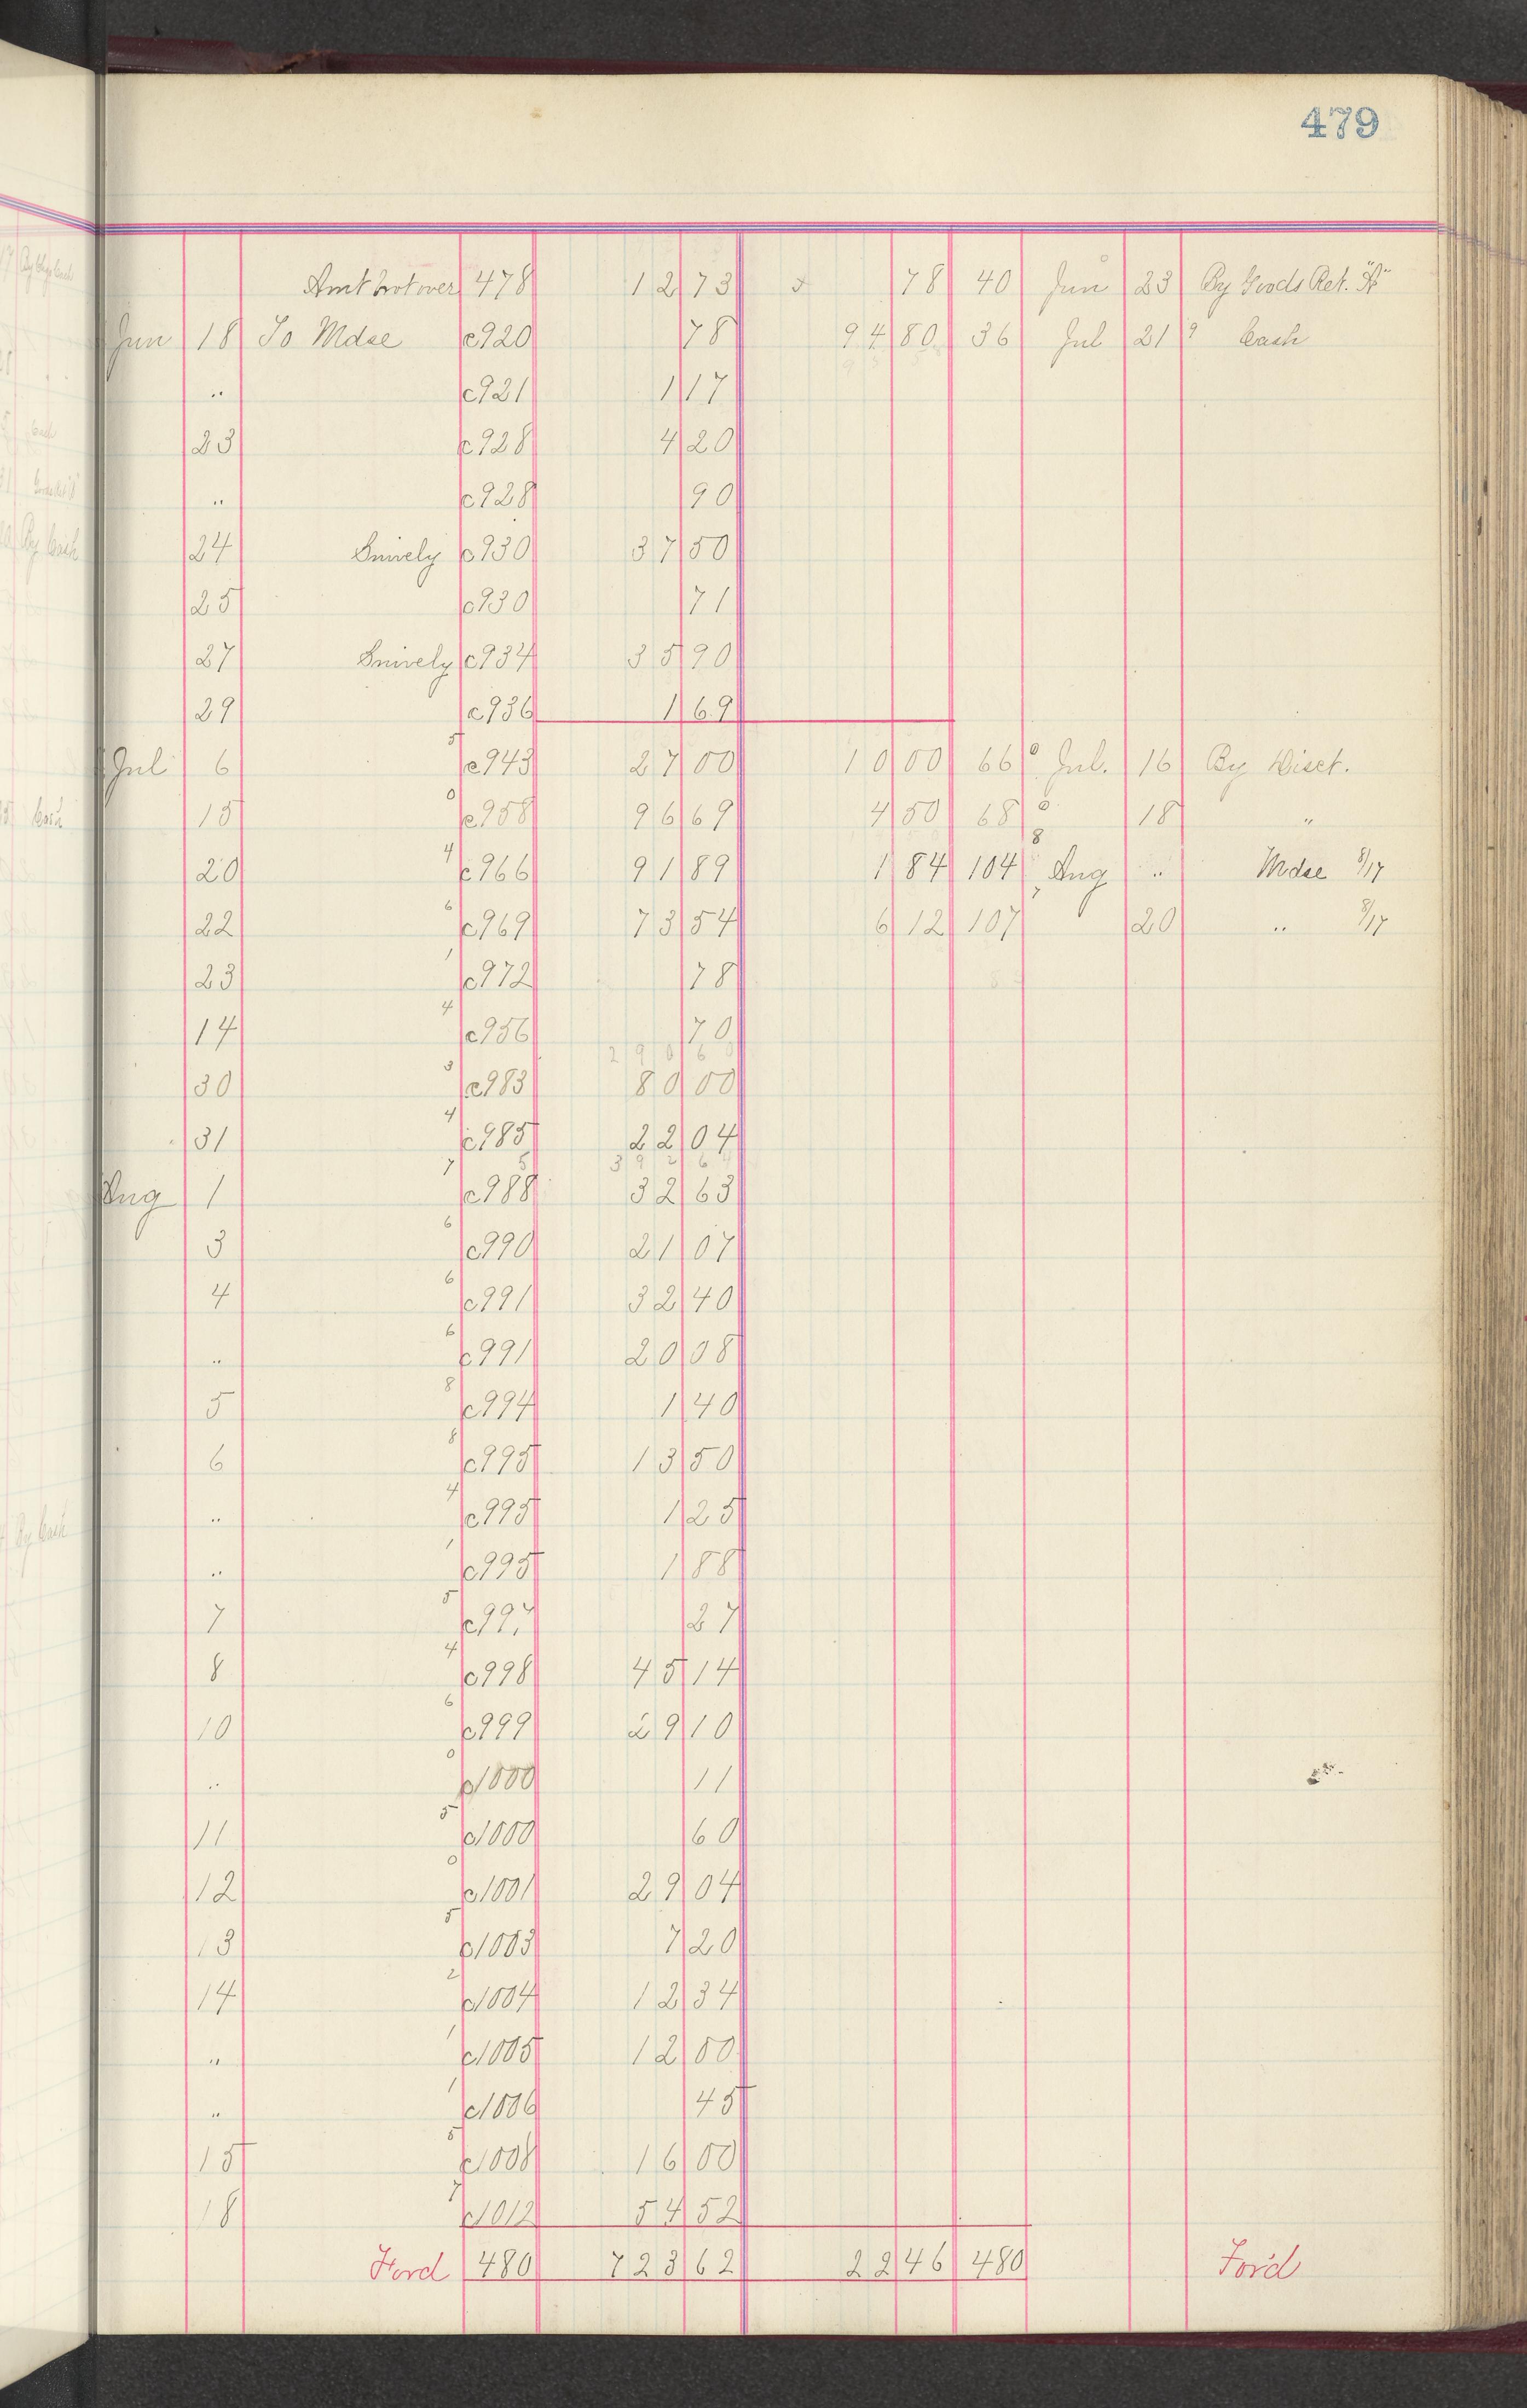 479
Amt brot over 478 12 73 78 40 Jun 23 By Goods Ret. "A"
Jun 18 To Mdse c920 78 94 80 36 Jul 21 " Cash
" c921 1 17
23 c928 4 20
" c928 90
24 Snively c930 37 50
25 c930 71
27 Snively c934 35 90
29 c936 1 69
Jul 6 5 c943 27 00 10 00 66 0 Jul. 16 By Disct.
15 0 c958 96 69 4 50 68 0 18 "
20 4 c966 91 89 1 84 104 8 Aug " Mdse 8/17
22 6 c969 73 54 6 12 107 20 " 8/17
23 1 c972 78
14 4 c956 70
30 3 c983 80 00
31 4 c985 22 04
Aug 1 7 c988 32 63
3 6 c990 21 07
4 6 c991 32 40
" 6 c991 20 08
5 8 c994 1 40
6 8 c995 13 50
" 4 c995 1 25
" 1 c995 1 88
7 5 c997 27
8 4 c998 45 14
10 6 c999 29 10
" 0 c1000 11
11 5 c1000 60
12 0 c1001 29 04
13 5 c1003 7 20
14 2 c1004 12 34
" 1 c1005 12 00
" 1 c1006 45
15 5 c1008 16 00
18 7 c1012 54 52
Ford 480 723 62 22 46 480 For'd